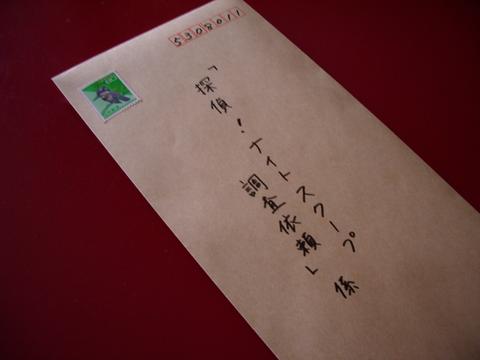 5308011
「探偵!ナイトスクープ係
調査依頼」